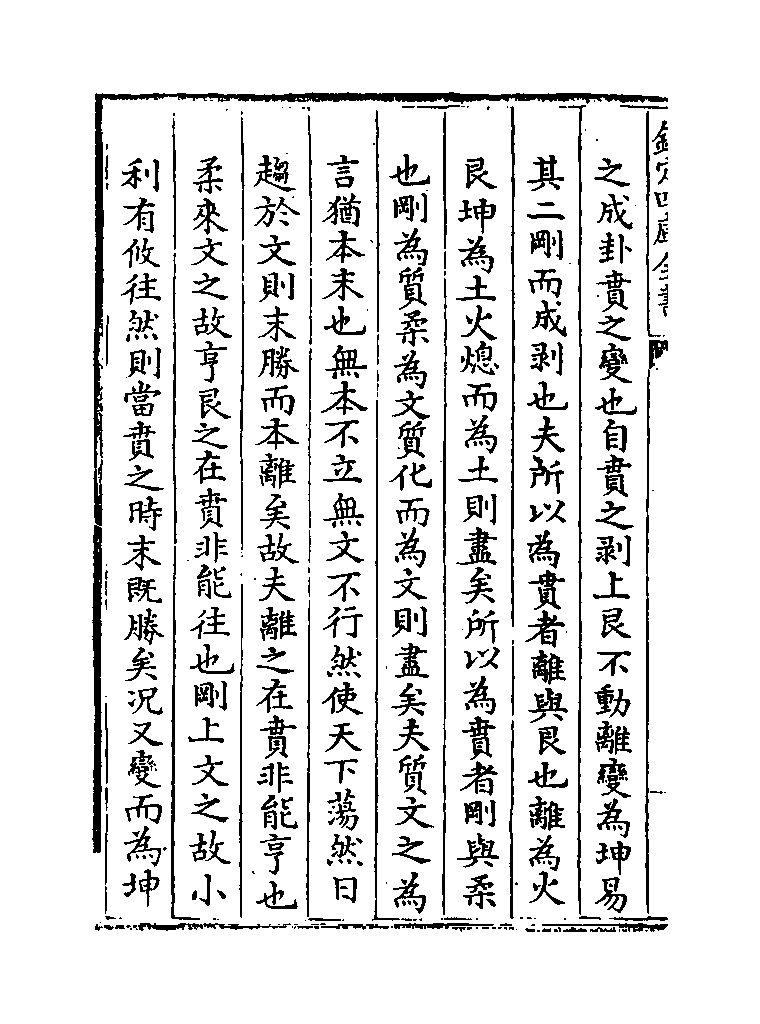 欽定四庫全書
之成卦賁之變也自賁之剥上艮不動離變為坤易
其二剛而成剥也夫所以為賁者離與艮也離為火
艮坤為土火熄而為土則盡矣所以為賁者剛與柔
也剛為質柔為文質化而為文則盡矣夫質文之為
言猶本末也無本不立無文不行然使天下蕩然日
趨於文則末勝而本離矣故夫離之在賁非能亨也
柔來文之故亨艮之在賁非能往也剛上文之故小
利有攸往然則當賁之時末既勝矣况又變而為坤